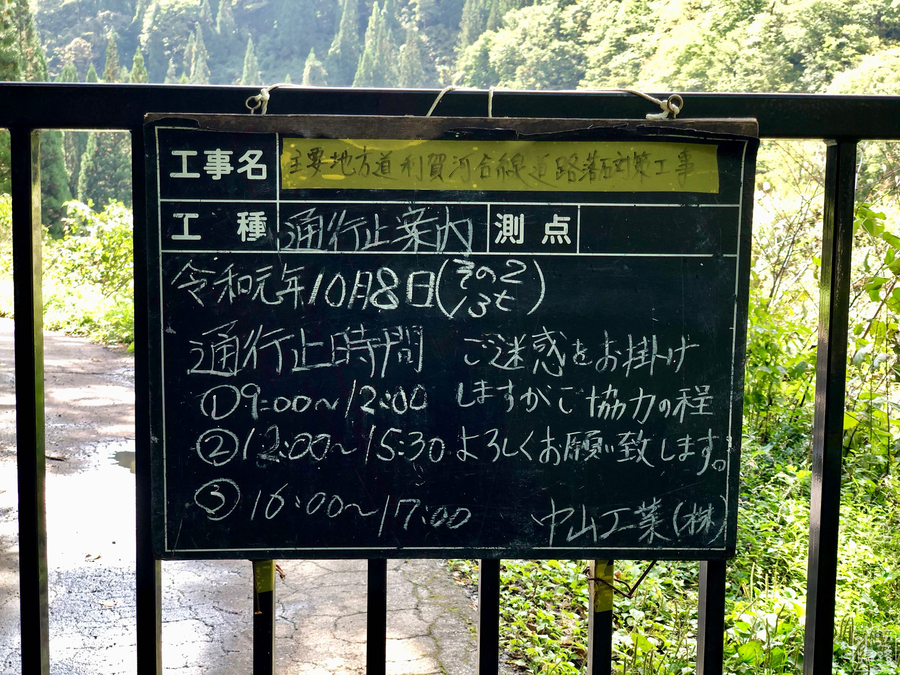 工事名 主要地方道利賀河合線道路落石対策工事
工種 通行止案内 測点
令和元年10月8日(その2/3も)
通行止時間 ご迷惑をお掛け
①9:00～12:00 しますがご協力の程
②12:00～15:30 よろしくお願い致します。
③16:00～17:00 中山工業(株)